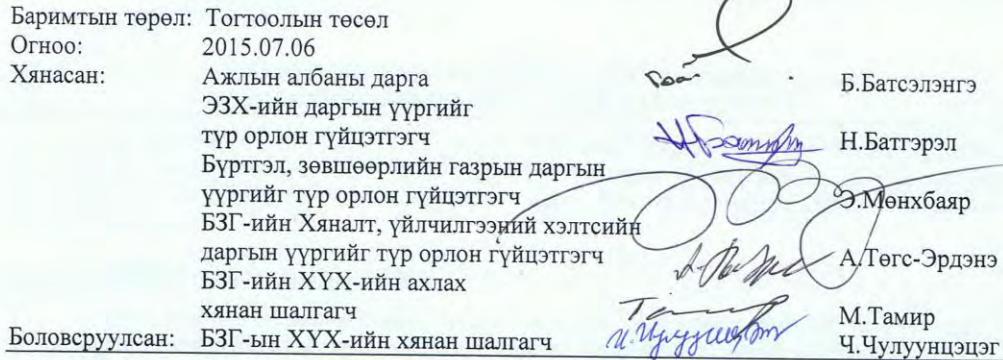 Баримтын төрөл: Тогтоолын төсөл
Огноо: 2015.07.06
Хянасан: Ажлын албаны дарга Б.Батсэлэнгэ
ЭЗХ-ийн даргын үүргийг
түр орлон гүйцэтгэгч Н.Батгэрэл
Бүртгэл, зөвшөөрлийн газрын даргын
үүргийг түр орлон гүйцэтгэгч Э.Мөнхбаяр
БЗГ-ийн Хяналт, үйлчилгээний хэлтсийн
даргын үүргийг түр орлон гүйцэтгэгч А.Төгс-Эрдэнэ
БЗГ-ийн ХҮХ-ийн ахлах
хянан шалгагч М.Тамир
Боловсруулсан: БЗГ-ын ХҮХ-ийн хянан шалгагч Ч.Чулуунцэцэг